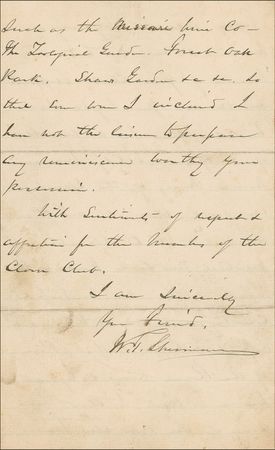 Such as the Missouri fire Co—
The Zoological Garden. Forest Oak
Park. Shaws Garden &c &c. So
that even were I inclined I
have not the leisure to prepare
any reminiscence worthy your
possession.
With Sentiments of respect &
affection for the Members of the
Clover Club.
I am Sincerely
Your friend,
W. T. Sherman